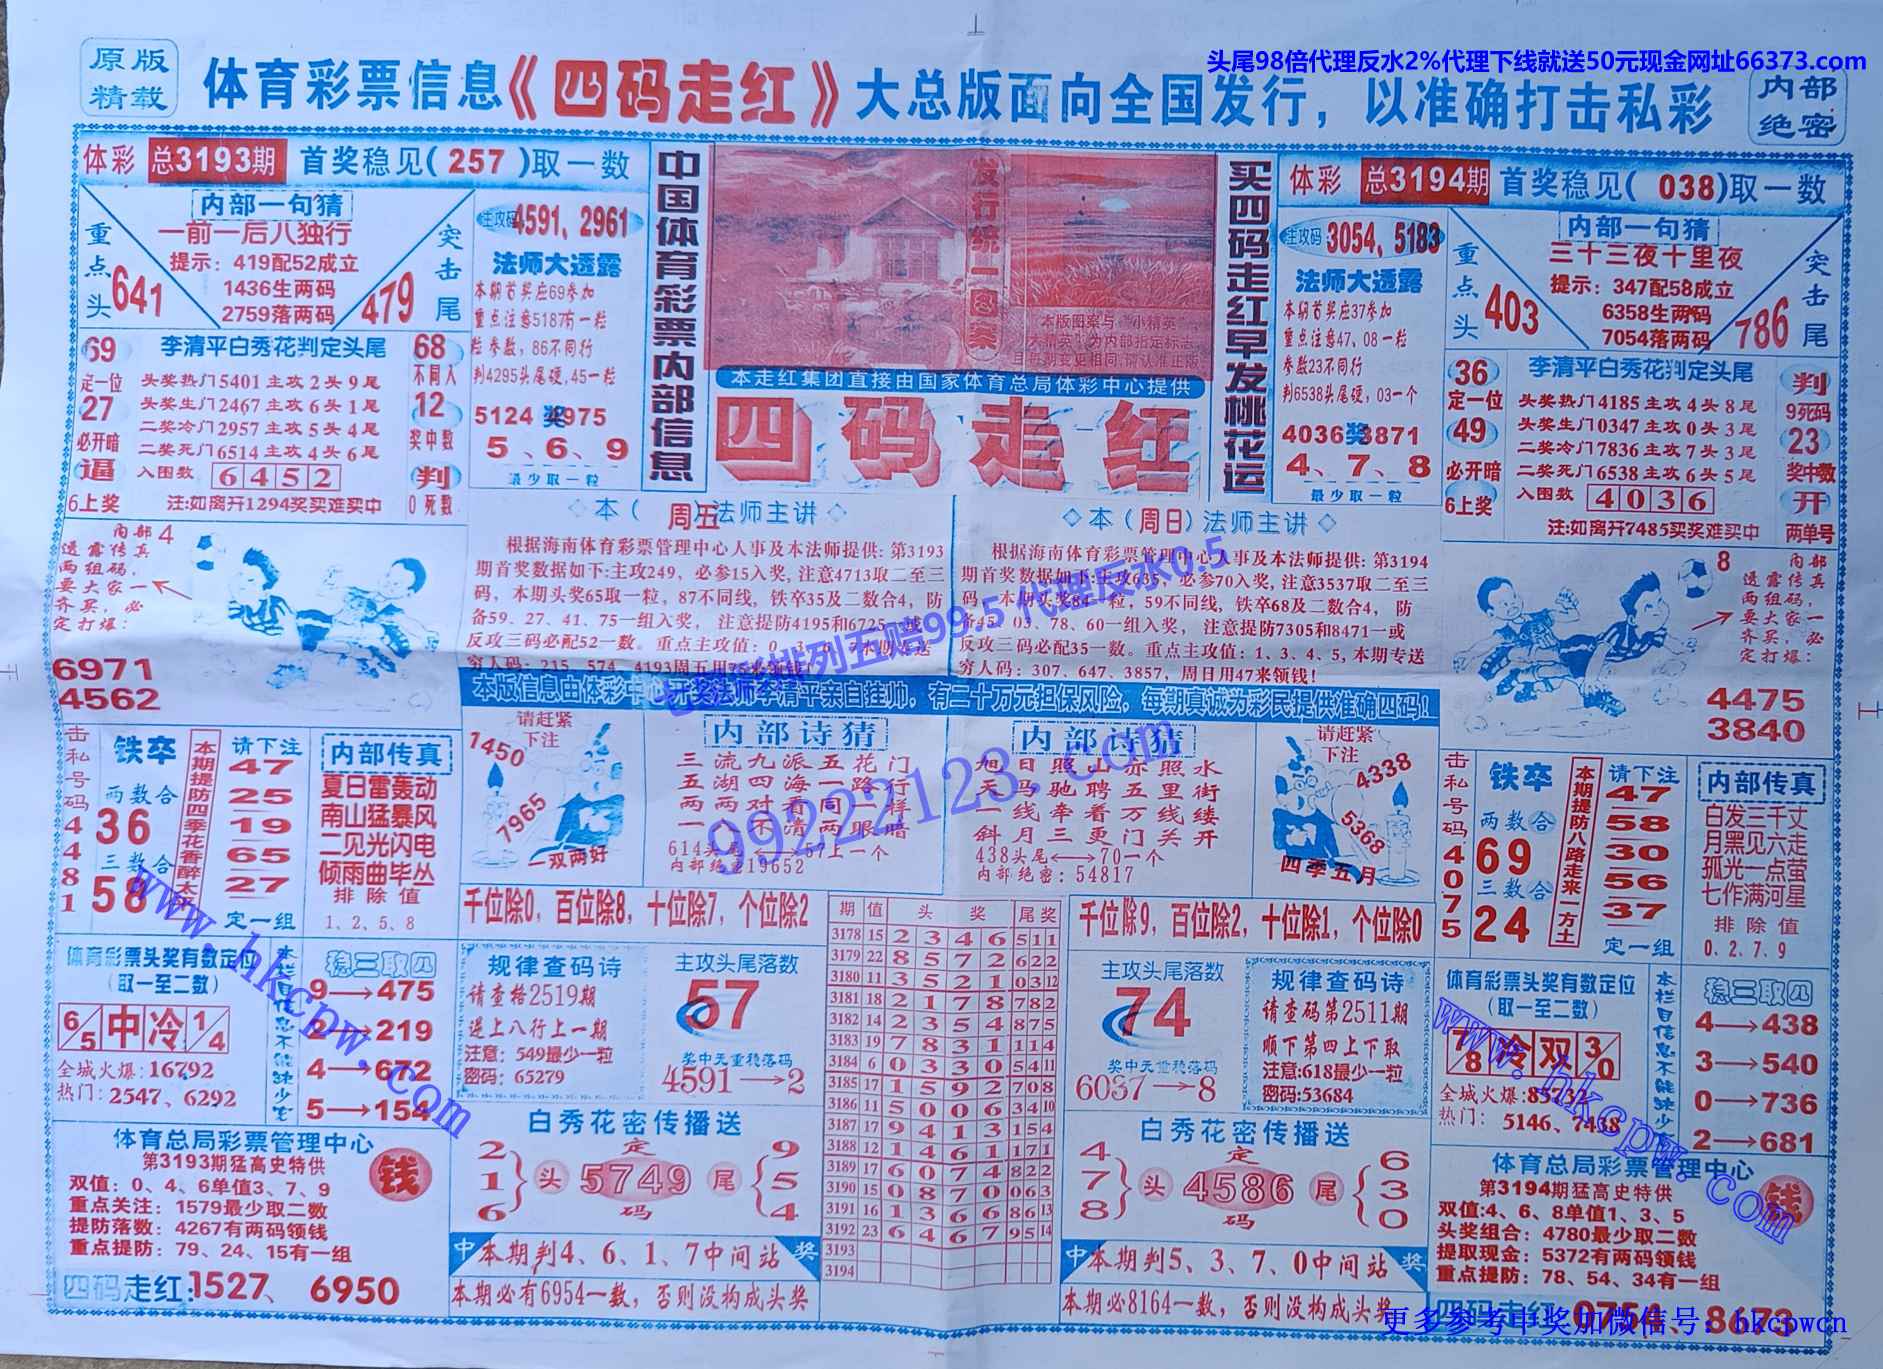 头尾98倍代理反水2%代理下线就送50元现金网址66373.com
原版
精载
体育彩票信息《四码走红》大总版面向全国发行，以准确打击私彩
内部
绝密
体彩 总3193期 首奖稳见(257)取一数
内部一句猜
一前一后八独行
提示：419配52成立
1436生两码
2759落两码
重点头
641
突击尾
479
主攻码4591、2961
法师大透露
本期首奖应69参加
重点注意5187有一粒
粒参数，86不同行
判4295头尾硬，45一粒
5124奖3975
5、6、9
最少取一粒
69
定一位
27
必开暗
逼
6上奖
李清平白秀花判定头尾
头奖热门5401主攻2头9尾
头奖生门2467主攻6头1尾
二奖冷门2957主攻5头4尾
二奖死门6514主攻4头6尾
入围数 6452
注:如离开1294奖买难买中
68
不同入
12
奖中数
判
0死数
中国体育彩票内部信息
发行统一图案
本版图案与“小精英”
大精英”为内部指定标志
且每期变更相同,请认准正版
本走红集团直接由国家体育总局体彩中心提供
四码走红
买四码走红早发桃花运
体彩 总3194期 首奖稳见(038)取一数
主攻码3054、5183
法师大透露
本期首奖应37参加
重点注意47、08一粒
参数23不同行
判6538头尾硬，03一个
4036奖3871
4、7、8
最少取一粒
内部一句猜
三十三夜十里夜
提示：347配58成立
6358生两码
7054落两码
重点头
403
突击尾
786
36
定一位
49
必开暗
6上奖
李清平白秀花判定头尾
头奖热门4185主攻4头8尾
头奖生门0347主攻0头3尾
二奖冷门7836主攻7头3尾
二奖死门6538主攻6头5尾
入围数 4036
注:如离开7485买奖难买中
判
9死码
23
奖中数
开
两单号
内部 4
透露传真
两组码，
要大家一
齐买，必
定打爆：
6971
4562
本（周五）法师主讲
根据海南体育彩票管理中心人事及本法师提供: 第3193
期首奖数据如下:主攻249，必参15入奖,注意4713取二至三
码，本期头奖65取一粒，87不同线，铁卒35及二数合4，防
备59、27、41、75一组入奖， 注意提防4195和6725一或
反攻三码必配52一数。重点主攻值：0
穷人码：215、574、4193周五用75必领钱!
本（周日）法师主讲
根据海南体育彩票管理中心人事及本法师提供: 第3194
期首奖数据如下:主攻635，必参70入奖,注意3537取二至三
码，本期头奖84一粒，59不同线，铁卒68及二数合4， 防
备45、03、78、60一组入奖， 注意提防7305和8471一或
反攻三码必配35一数。重点主攻值：1、3、4、5,本期专送
穷人码：307、647、3857，周日用47来领钱!
七星排列五赔99.5 代理反水0.5
99222123.com
8 内部
透露传真
两组码，
要大家一
齐买，必
定打爆：
4475
3840
本版信息由体彩中心开奖法师李清平亲自挂帅，有二十万元担保风险，每期真诚为彩民提供准确四码!
击私号码4481
铁卒
两数合
36
三数合
58
本期提防四季花香醉太平
请下注
47
25
19
65
27
定一组
内部传真
夏日雷轰动
南山猛暴风
二见光闪电
倾雨曲毕丛
排除值
1、2、5、8
请赶紧
下注
1450
7965
一双两好
内部诗猜
三流九派五花门
五湖四海一路行
两两对看同一样
一 不清两眼瞎
614头尾⟷57上一个
内部绝密19652
内部诗猜
旭日照山亦照水
天马驰骋五里街
一线牵着万线缕
斜月三更门关开
438头尾⟷70一个
内部绝密：54817
请赶紧
下注
4338
5368
四季五月
击私号码4075
铁卒
两数合
69
三数合
24
本期提防八路走来一方土
请下注
47
58
30
56
37
定一组
内部传真
白发三千丈
月黑见六走
孤光一点萤
七作满河星
排除值
0、2、7、9
千位除0，百位除8，十位除7，个位除2
千位除9，百位除2，十位除1，个位除0
体育彩票头奖有数定位
(取一至二数)
6/5 中 冷 1/4
全城火爆：16792
热门：2547、6292
本栏目信息不能缺少它
稳三取四
9→475
2→219
4→672
5→154
规律查码诗
请查格2519期
逞上八行上一期
注意：549最少一粒
密码：65279
主攻头尾落数
57
奖中无重稳落码
4591→2
期 值 头奖 尾奖
3178 15 2 3 4 6 5 1 1
3179 22 8 5 7 2 6 2 2
3180 11 3 5 2 1 0 3 12
3181 18 2 1 7 8 7 8 2
3182 14 2 3 5 4 8 7 5
3183 19 7 8 3 1 1 1 4
3184 6 0 3 3 0 5 4 11
3185 17 1 5 9 2 7 0 8
3186 11 5 0 0 6 3 4 10
3187 17 9 4 1 3 1 5 4
3188 12 1 4 6 1 1 7 1
3189 17 6 0 7 4 8 2 2
3190 15 0 8 7 0 0 6 3
3191 16 1 3 6 6 8 6 13
3192 23 6 4 6 7 9 5 14
3193
3194
主攻头尾落数
74
奖中无重稳落码
6037→8
规律查码诗
请查码第2511期
顺下第四上下取
注意:618最少一粒
密码:53684
体育彩票头奖有数定位
(取一至二数)
7/8 冷 双 3/0
全城火爆:85737
热门： 5146、7438
本栏目信息不能缺少它
稳三取四
4→438
3→540
0→736
2→681
www.hkcpw.com
www.hkcpw.com
体育总局彩票管理中心
第3193期猛高史特供
双值：0、4、6单值3、7、9
重点关注：1579最少取二数
提防落数：4267有两码领钱
重点提防：79、24、15有一组
钱
四码走红:1527、6950
白秀花密传播送
2 1 6 头 定 5749 码 尾 9 5 4
中 本期判4、6、1、7中间站 奖
本期必有6954一数，否则没构成头奖
白秀花密传播送
4 7 8 头 定 4586 码 尾 6 3 0
中 本期判5、3、7、0中间站 奖
本期必8164一数，否则没构成头奖
体育总局彩票管理中心
第3194期猛高史特供
双值:4、6、8单值1、3、5
头奖组合：4780最少取二数
提取现金：5372有两码领钱
重点提防：78、54、34有一组
钱
四码走红:0754、8173
更多参考中奖加微信号：hkcpwcn